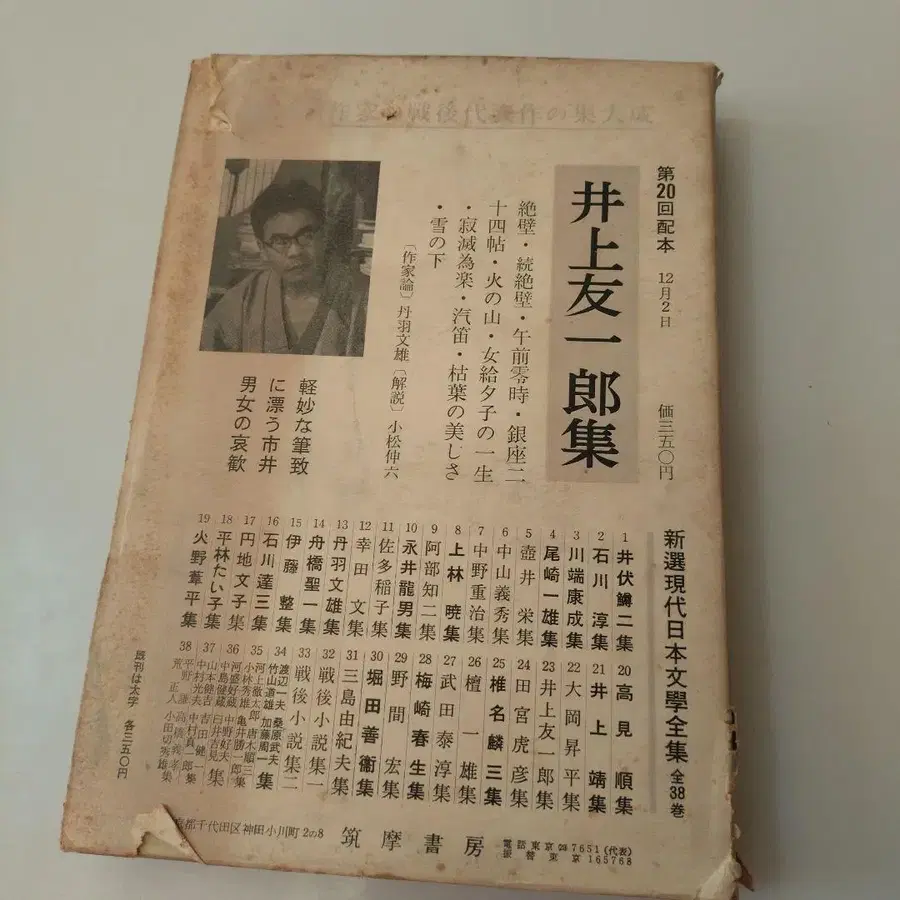 作家の戦後代表作の集大成
第20回配本 12月2日 価三五〇円
井上友一郎集
絶壁・続絶壁・午前零時・銀座二
十四帖・火の山・女給夕子の一生
・寂滅為楽・汽笛・枯葉の美しさ
・雪の下
〔作家論〕丹羽文雄〔解説〕小松伸六
軽妙な筆致
に漂う市井
男女の哀歓
新選現代日本文學全集 全38巻
1 井伏鱒二集
2 石川淳集
3 川端康成集
4 尾崎一雄集
5 壺井栄集
6 中山義秀集
7 中野重治集
8 上林暁集
9 阿部知二集
10 永井龍男集
11 佐多稲子集
12 幸田文集
13 丹羽文雄集
14 舟橋聖一集
15 伊藤整集
16 石川達三集
17 円地文子集
18 平林たい子集
19 火野葦平集
20 高見順集
21 井上靖集
22 大岡昇平集
23 井上友一郎集
24 田宮虎彦集
25 椎名麟三集
26 檀一雄集
27 武田泰淳集
28 梅崎春生集
29 野間宏集
30 堀田善衞集
31 三島由紀夫集
32 戦後小説集一
33 戦後小説集二
34 渡辺一夫 桑原武夫
竹山道雄 加藤周一 集
35 河上徹太郎 唐木順三
小林秀雄 亀井勝一郎 集
36 河盛好蔵 中野好夫
中島健蔵 臼井吉見 集
37 山本健吉 吉田健一
中村光夫 中村真一郎 集
38 平野謙 高橋義孝
荒正人 小田切秀雄 集
既刊は太字 各三五〇円
京都千代田区神田小川町2の8
筑摩書房
電話東京(29)7651(代表)
振替東京165768